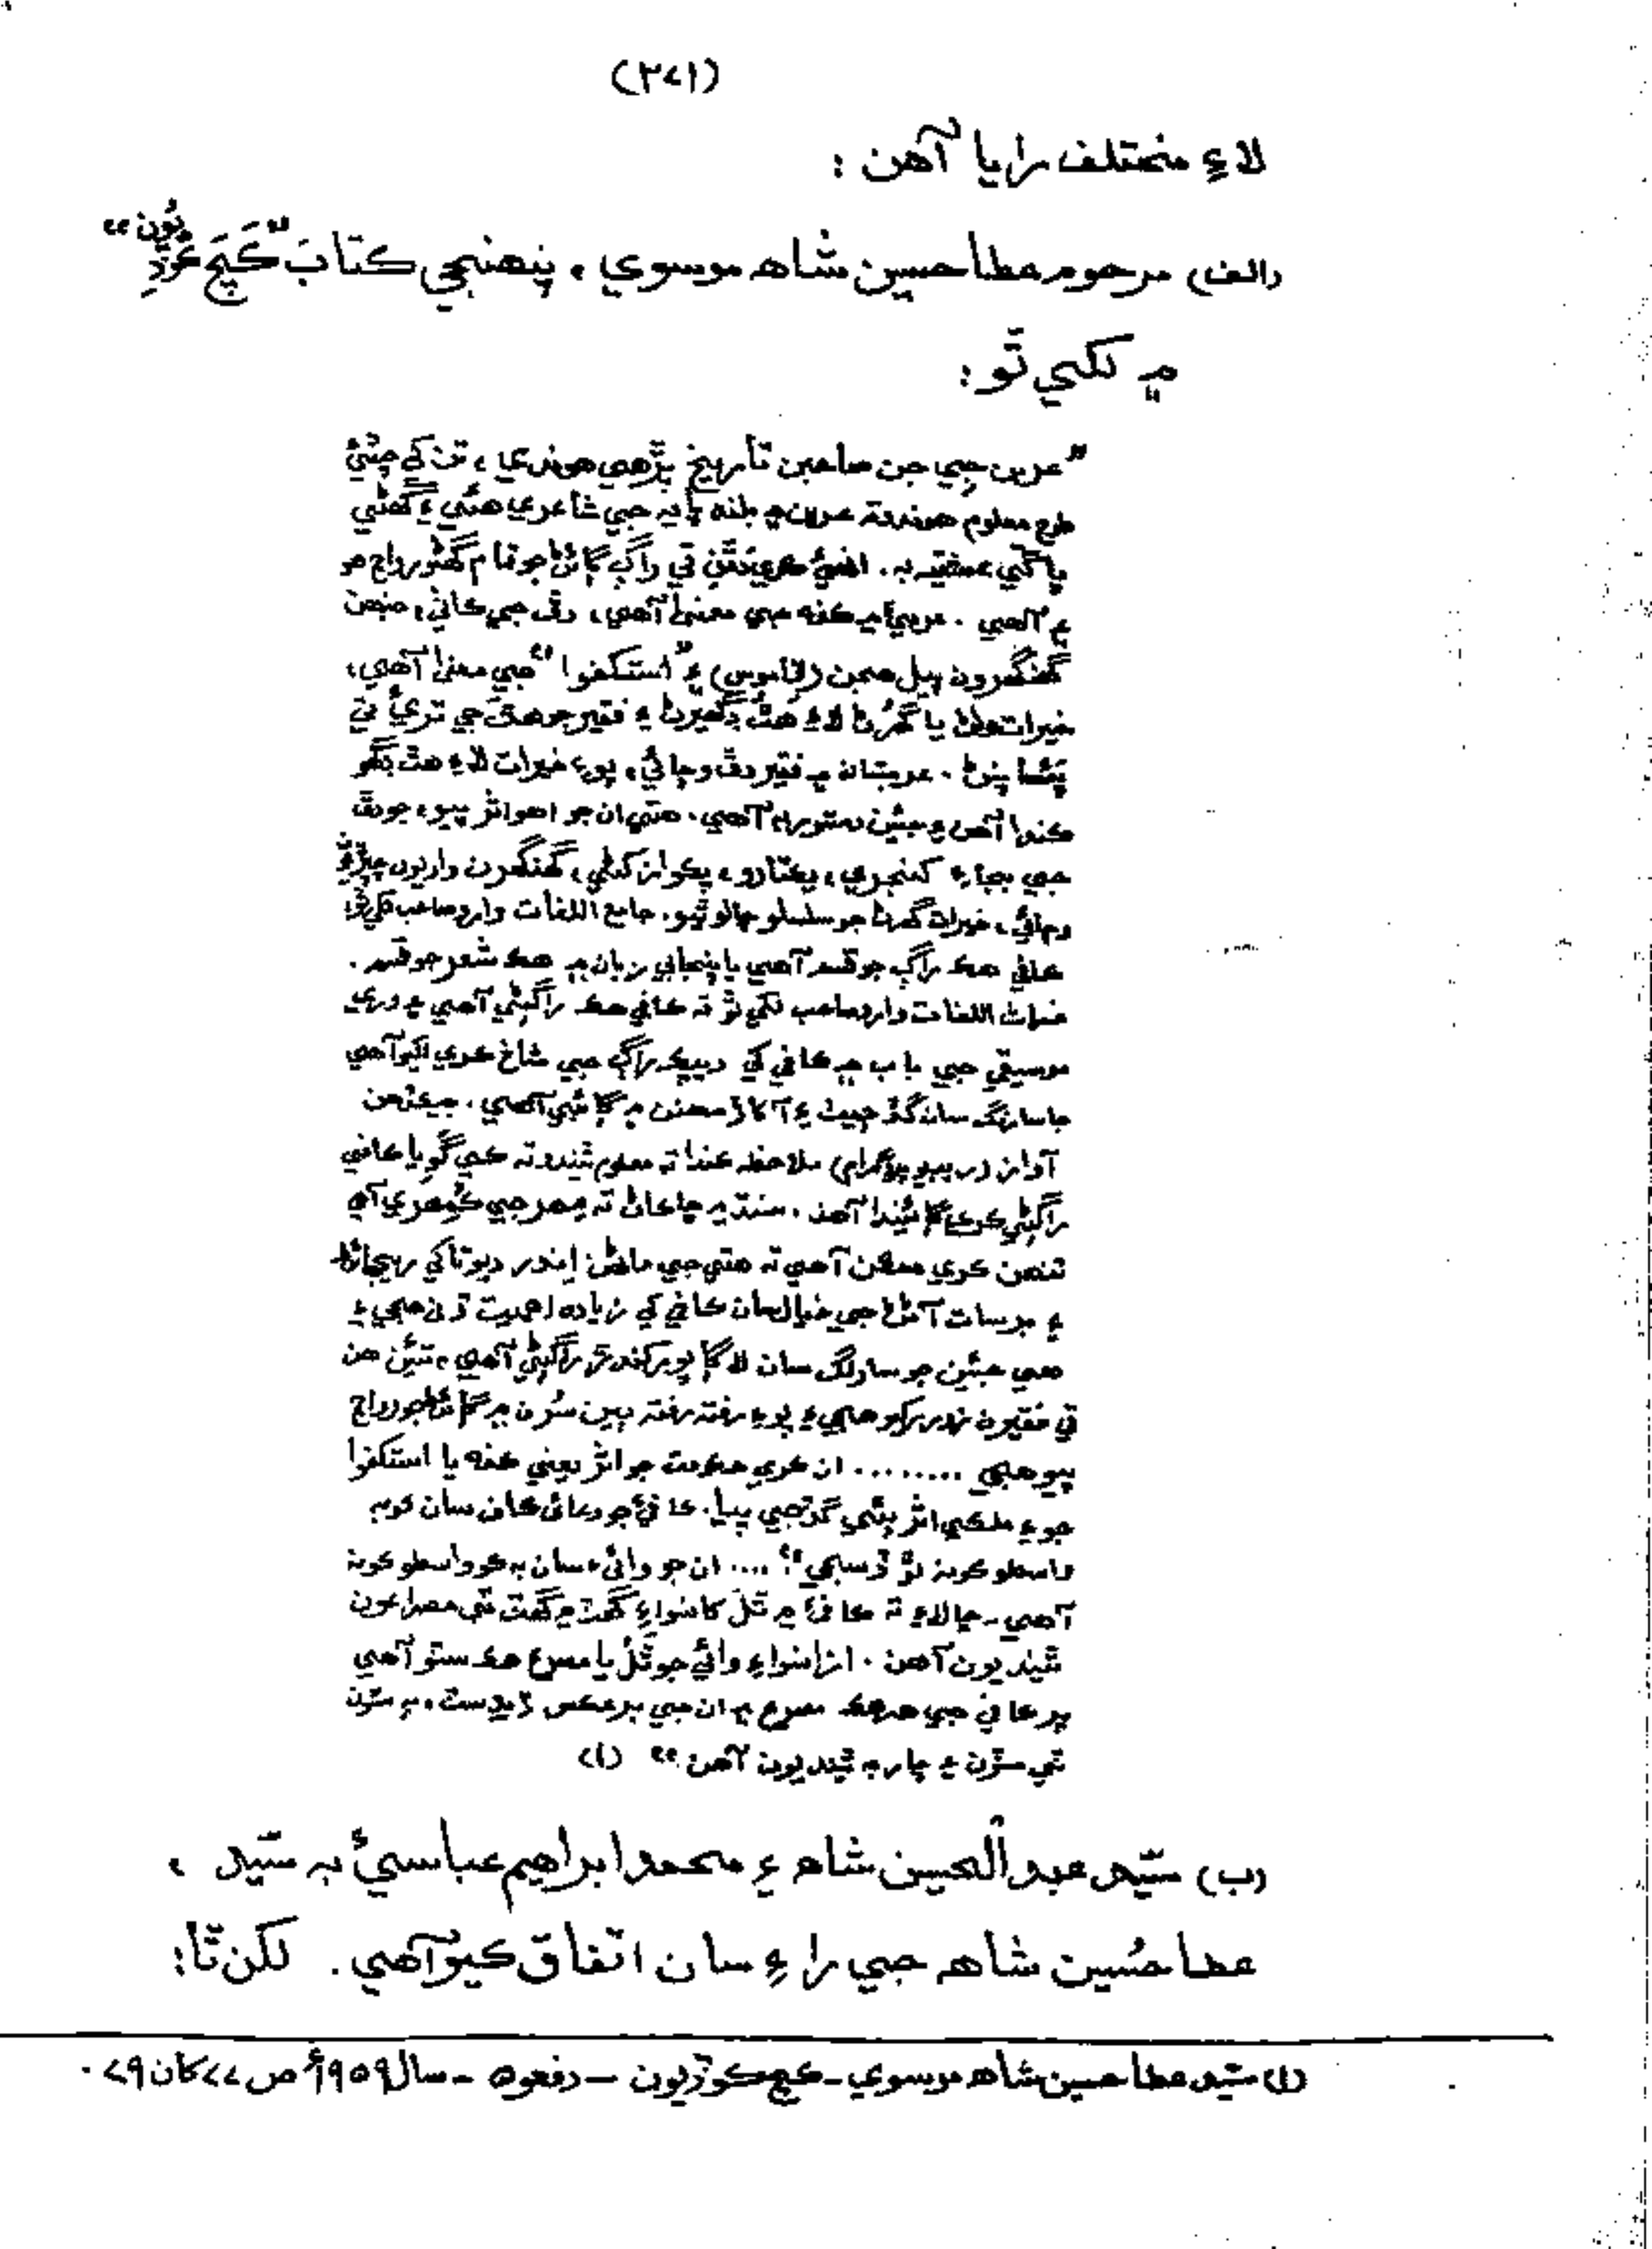 (٣٤١)
لاءِ مختلف رايا آهن :
(الف) مرحوم عطا حسين شاهه موسوي ، پنهنجي ڪتاب ”ڪَچَ ڪوڏِيُون“
۾ لکي ٿو :
”عربن جي جن صاحبن تاريخ پڙهي هوندي ، تن کي چڱيءَ
طرح معلوم هوندو ته عربن ۾ بلند پايه جي شاعري هئي ۽ گهڻي
ڀاڱي عشقيه به . دفن تي راڳ ڳائڻ جو تمام گهڻو رواج هو
۽ آهي . عربيءَ ۾ ڪفه جي معنيٰ آهي ، دف جي ڪاٺي ، جنهن
گهنگهرون پيل هجن (قاموس) ۽ ”استکفوا“ جي معنيٰ آهي ،
خيرات وٺڻ يا گهرڻ لاءِ هٿ ڊگهيرڻ ۽ فقير جو هٿ جي تريءَ تي
پئسا پنڻ . عربستان ۾ فقير دف وڄائي ، پوءِ خيرات لاءِ هٿ ڊگهو
ڪندا آهن ۽ جيئن دستور آهي . هتي ان جو اهو اثر پيو ، جو دف
جي بجاءِ کنجري ، يڪتارو ، گهنگهرن واريون چپڙيون
وڄائي ، خيرات گهرڻ جو سلسلو چالو ٿيو . جامع اللغات وارو صاحب لکي ٿو ،
ڪافي هڪ راڳ جو قسم آهي يا پنجابي زبان ۾ هڪ شعر جو قسم .
غياث اللغات وارو صاحب لکي ٿو ته ڪافي هڪ راڳڻي آهي ۽ وري
موسيقي جي باب ۾ ڪافي کي ديپڪ راڳ جي شاخ ڪري لکيو آهي
جا سارنگ سان گڏ جيٺ ۽ آکاڙ مهنن ۾ ڳائبي آهي . جيڪڏهن
آواز ريڊيو پروگرام ملاحظه ڪندا ته معلوم ٿيندو ته ڪي گويا ڪافي
راڳڻي ڪري ڳائيندا آهن . سنڌ ۾ ڇاڪاڻ ته
تنهن ڪري ممڪن آهي ته هتي جي ماڻهن اِندر ديوتا کي ريجهائڻ
۽ برسات آڻڻ جي خيال کان ڪافي کي زياده اهميت ڏني هجي ۽
هي جيئن جو سارنگ سان لاڳاپو رکندڙ راڳڻي آهي ، تيئن هن
تي فقيرن زور رکيو هجي ۽ پوءِ رفته رفته ٻين سُرن ۾ ڳائڻ جو رواج
پيو هجي ........ ان ڪري حڪومت جو اثر يعني ڪفه يا استکفوا
جو ۽ ملڪي اثر ٻئي گڏجي پيا . ڪافيءَ جو دعائي ڪافن سان ڪو به
واسطو ڪونه ٿو ڏسجي“ .... ان جو وائيءَ سان به ڪو واسطو ڪونه
آهي ـ ڇا لاءِ ته ڪافيءَ ۾ ٿلَ کا سواءِ گهٽ ۾ گهٽ ٽي مصراعون
ٿينديون آهن . ازانسواءِ وائي جو ٿلُ يا مصرع هڪ سٽو آهي
پر ڪافي جي هر هڪ مصرع ۾ ان جي برعڪس ڏيڍ سٽ ، ٻه سٽون
ٽي سٽون ۽ چار به ٿينديون آهن “ (١)
(ب) سّيد عبدالحسين شاهه ۽ محمد ابراهيم عباسيءَ به سّيد ،
عطا حُسين شاهه جي راءِ سان اتفاق ڪيو آهي . لکن ٿا :
(١) سّيد عطا حسين شاهه موسوي ـ ڪچ ڪوڏيون ــ دفعو ٥ ـ سال ١٩٥٩ع ص ٧٧ کان ٧٩ .